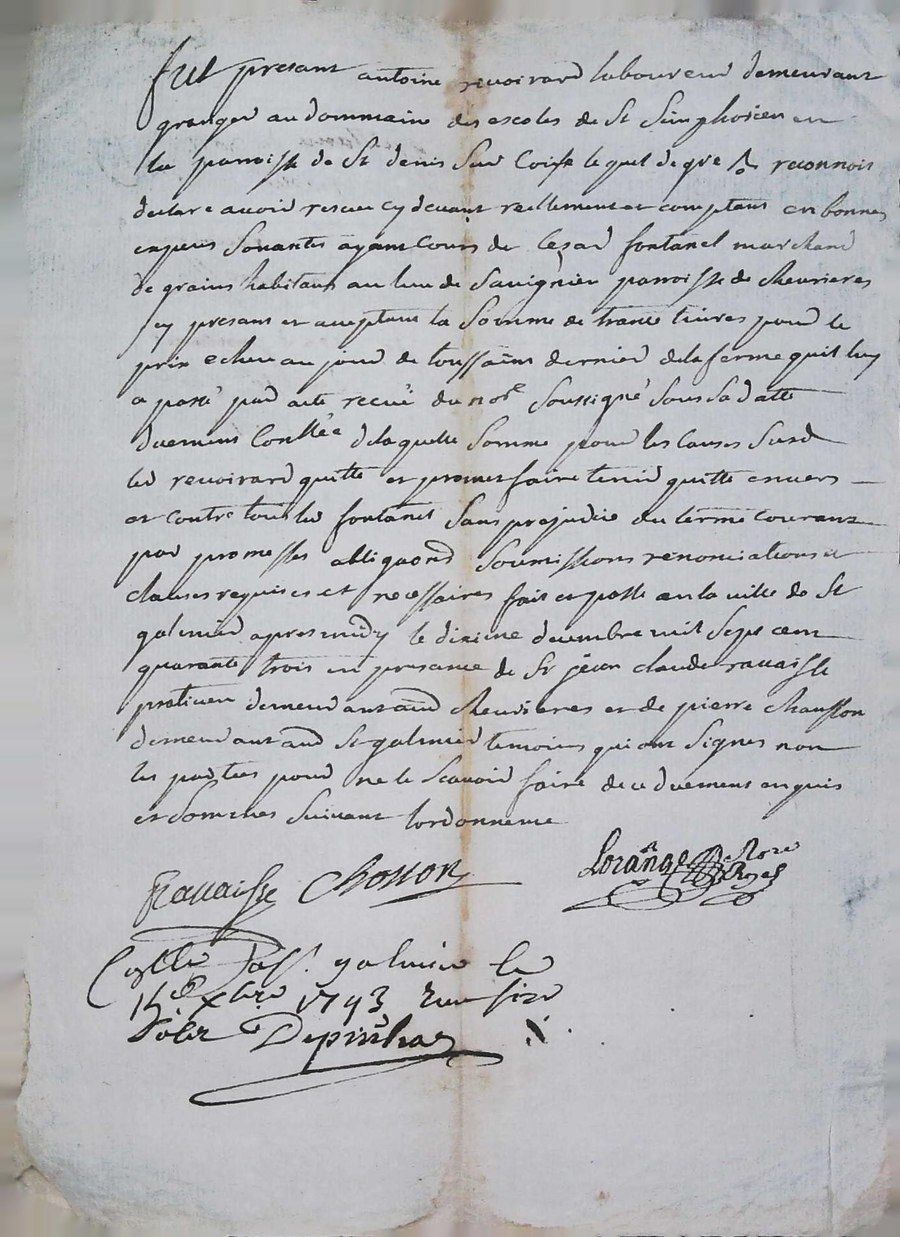 fut presant antoine reuoirard laboureur demeurant
granger au dommaine des escoles de St Simphorien en
la parroisse de St denis Sur Coise lequel de gre reconnois
declare auoir resceu cy deuant reellement et comptant en bonnes
espeues Sonantes ayant Cours de Cezar fontanel marchand
de grains habitant au lieu de Sauignieu parroisse de Cheurieres
cy presant et aceptant la Somme de trante liures pour le
prix echeu au jour de toussains dernier de la ferme quil luy
a passé par acte recue du nore Soussigné Sous Sa datte
duement Conllée de laquelle Somme pour les Causes Susd
led reuoirard quitte et promet faire tenir quitte enuers
et contre tous led fontanel Sans prejudice du terme courant
par promesses obligaons Soumissions renonciations et
clauses requises et necessaires fait et passé en la ville de St
galmier apres midy le dixieme decembre mil Sept cent
quarante trois en presance de Sr jean claude rauaisse
praticien demeurant aud Cheurieres et de pierre Chausson
demeurant aud St galmier temoins qui ont Signes non
les parties pour ne le Scauoir faire de ce duement enquis
et Sommes Suiuant lordonnence
Rauaisse Chosson Lorange Nore Royal
Conlle a St galmier le
14e xbre 1743 Receu Six
Sols Depinhac